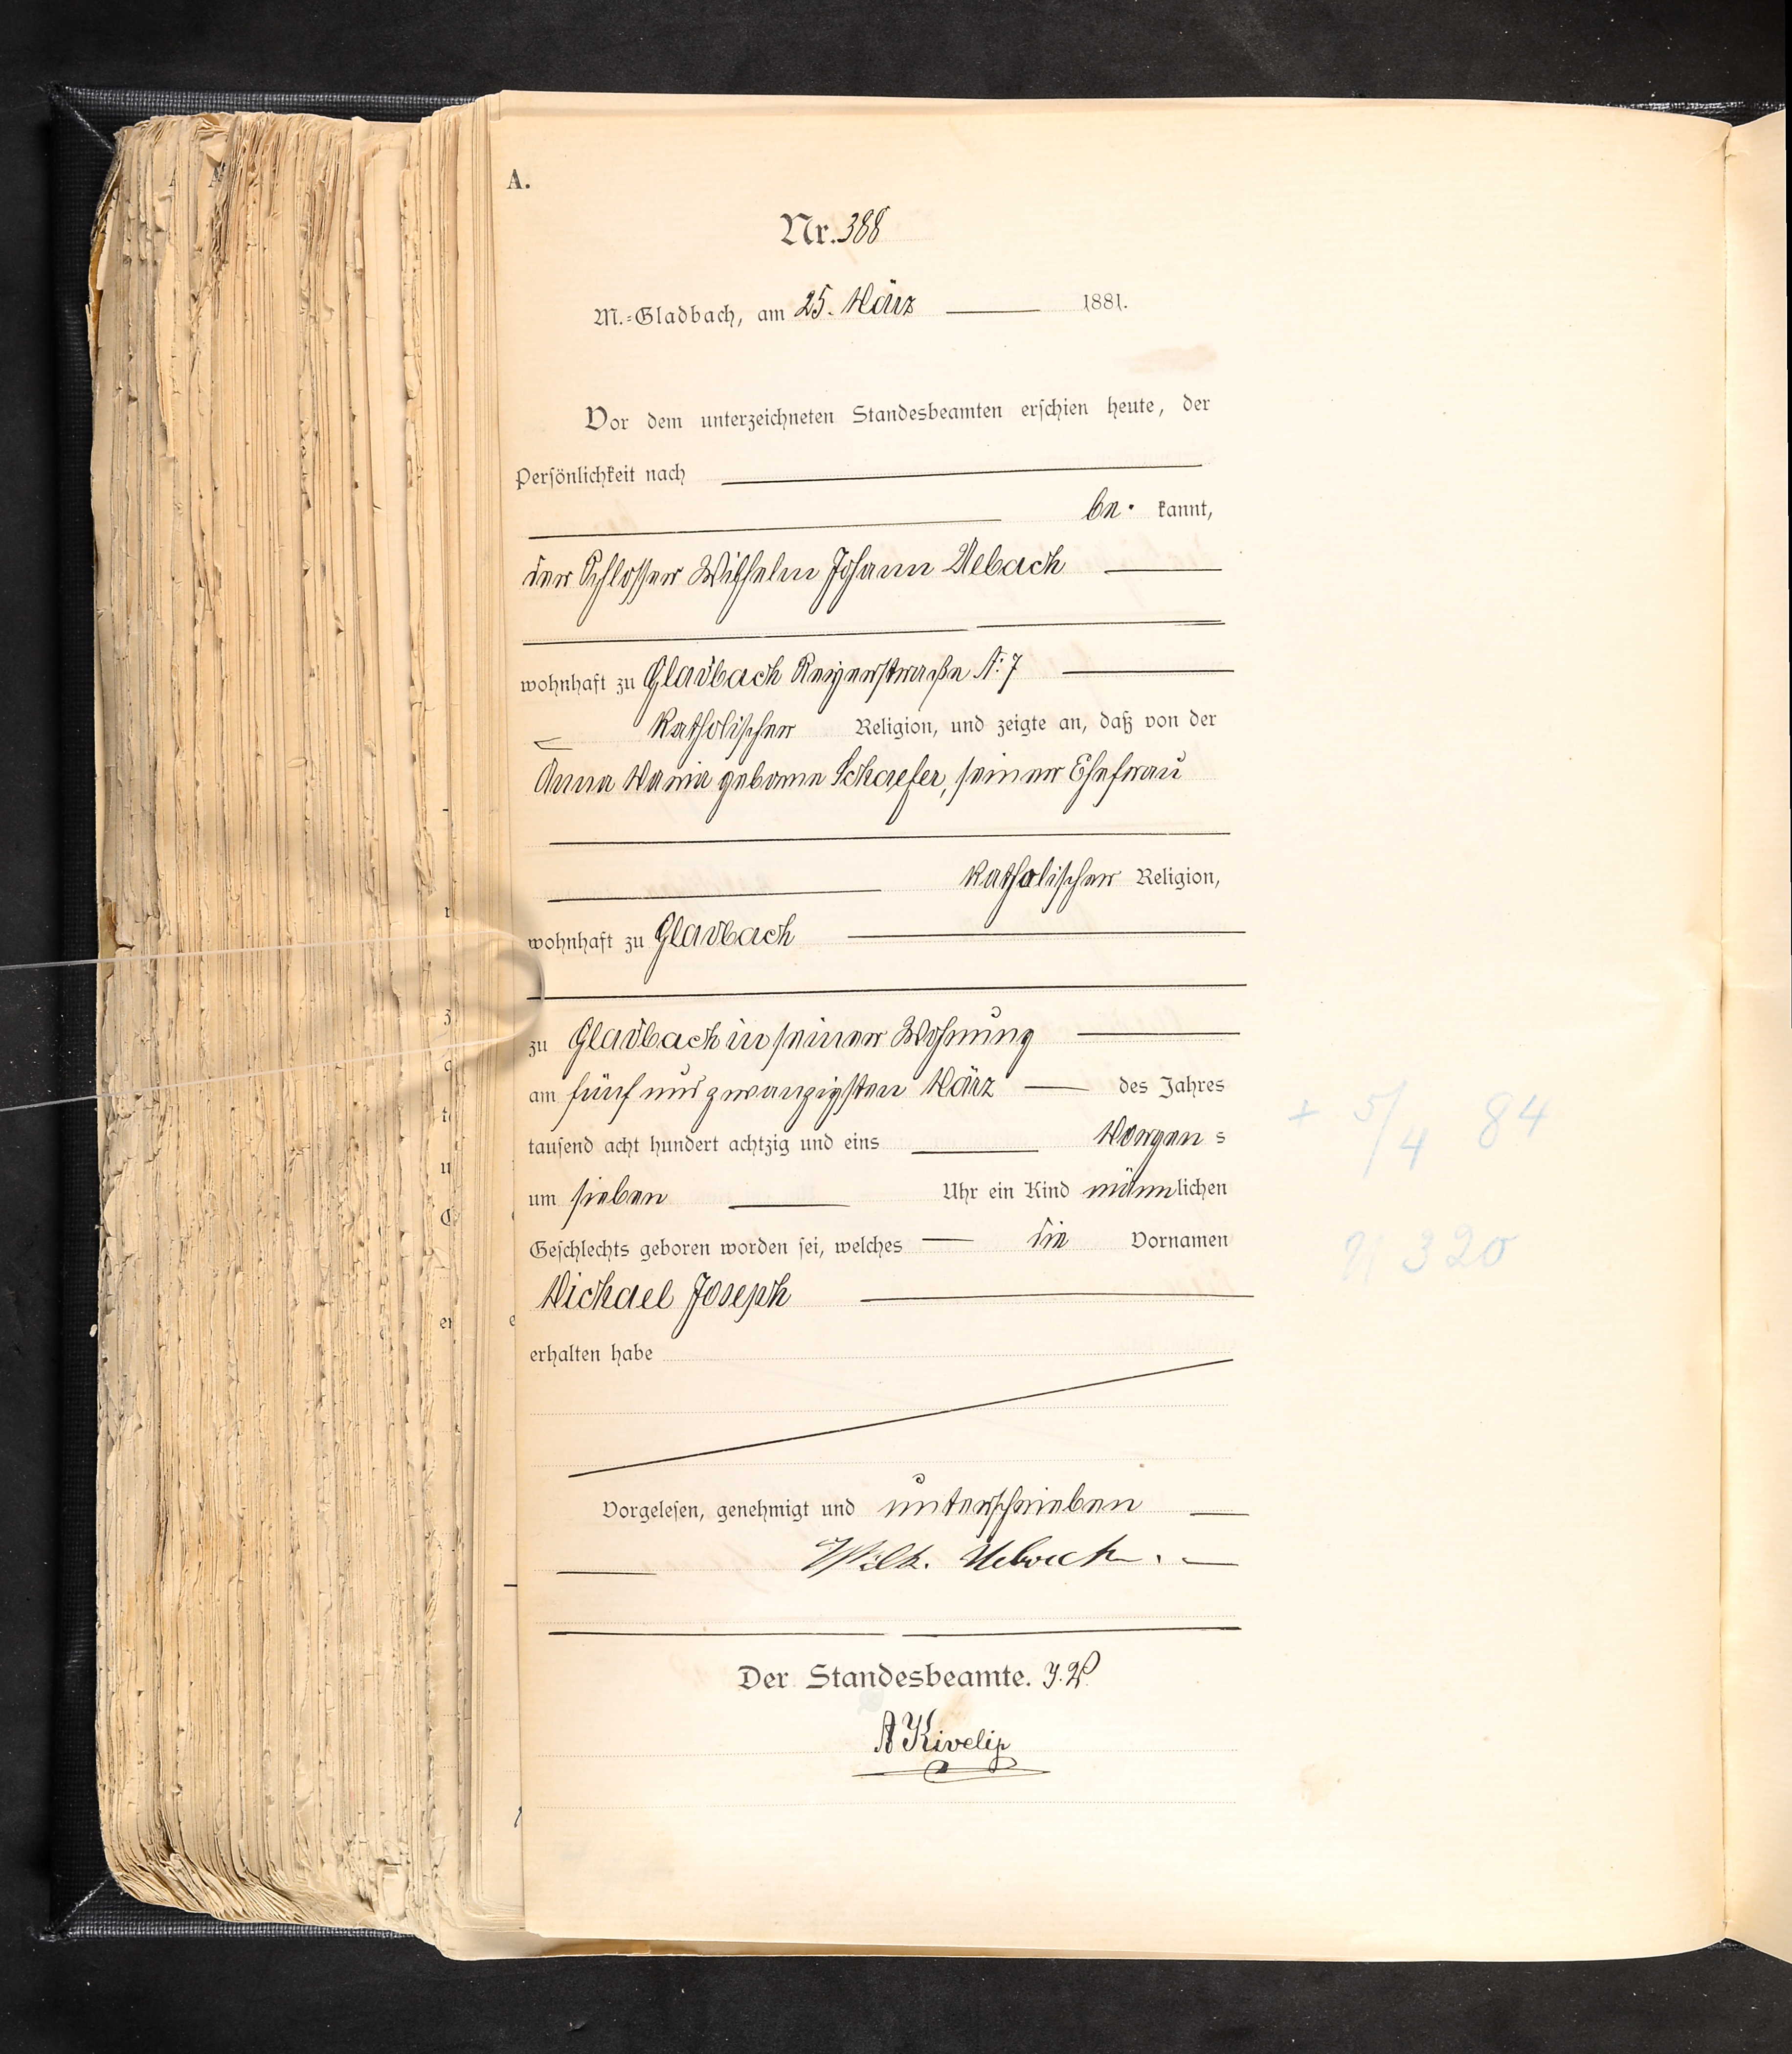 A.
Nr. 388
M.-Gladbach, am 25. März 1881.
Vor dem unterzeichneten Standesbeamten erschien heute, der
Persönlichkeit nach
be- kannt,
der Schlosser Wilhelm Johann Uebach
wohnhaft zu Gladbach Reyerstraße N: 7
katholischer Religion, und zeigte an, daß von der
Anna Maria geborne Schaefer, seiner Ehefrau
katholischer Religion,
wohnhaft zu Gladbach
zu Gladbach in seiner Wohnung
am fünf und zwanzigsten März des Jahres
tausend acht hundert achtzig und eins Morgens
um sieben Uhr ein Kind männlichen
Geschlechts geboren worden sei, welches die Vornamen
Michael Joseph
erhalten habe
Vorgelesen, genehmigt und unterschrieben
Wilh. Uebach.
Der Standesbeamte. J.V.
A Kivelip
+ 5/4 84
N 320